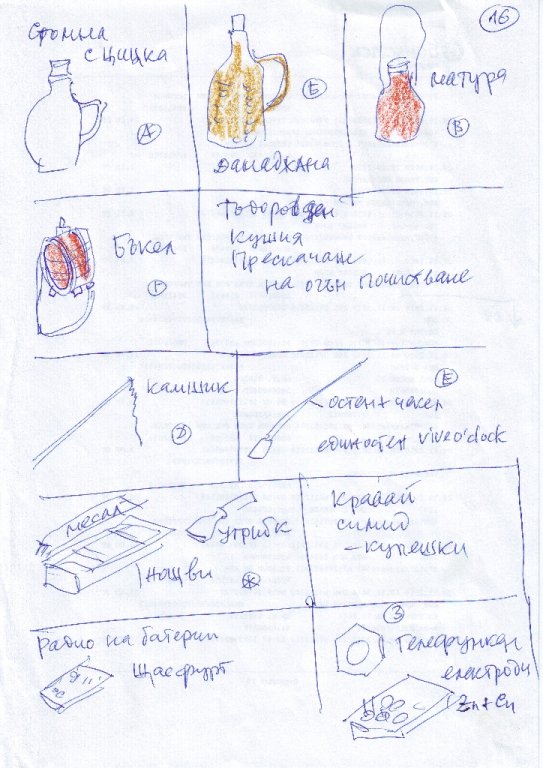 16
стомна
с цицка
А
Б
дамаджана
матура
В
Бъкел
Г
Тодоровден
кушия
Прескачане
на огън почистване
камшик
Д
Е
остен + чекел
единостен viveo'clock
месал
утрибк
нощви
Ж
Кравай
симид
- купешки
Радио на батерии
Щасфурт
З
Телефункен
електроди
Zn + Cu